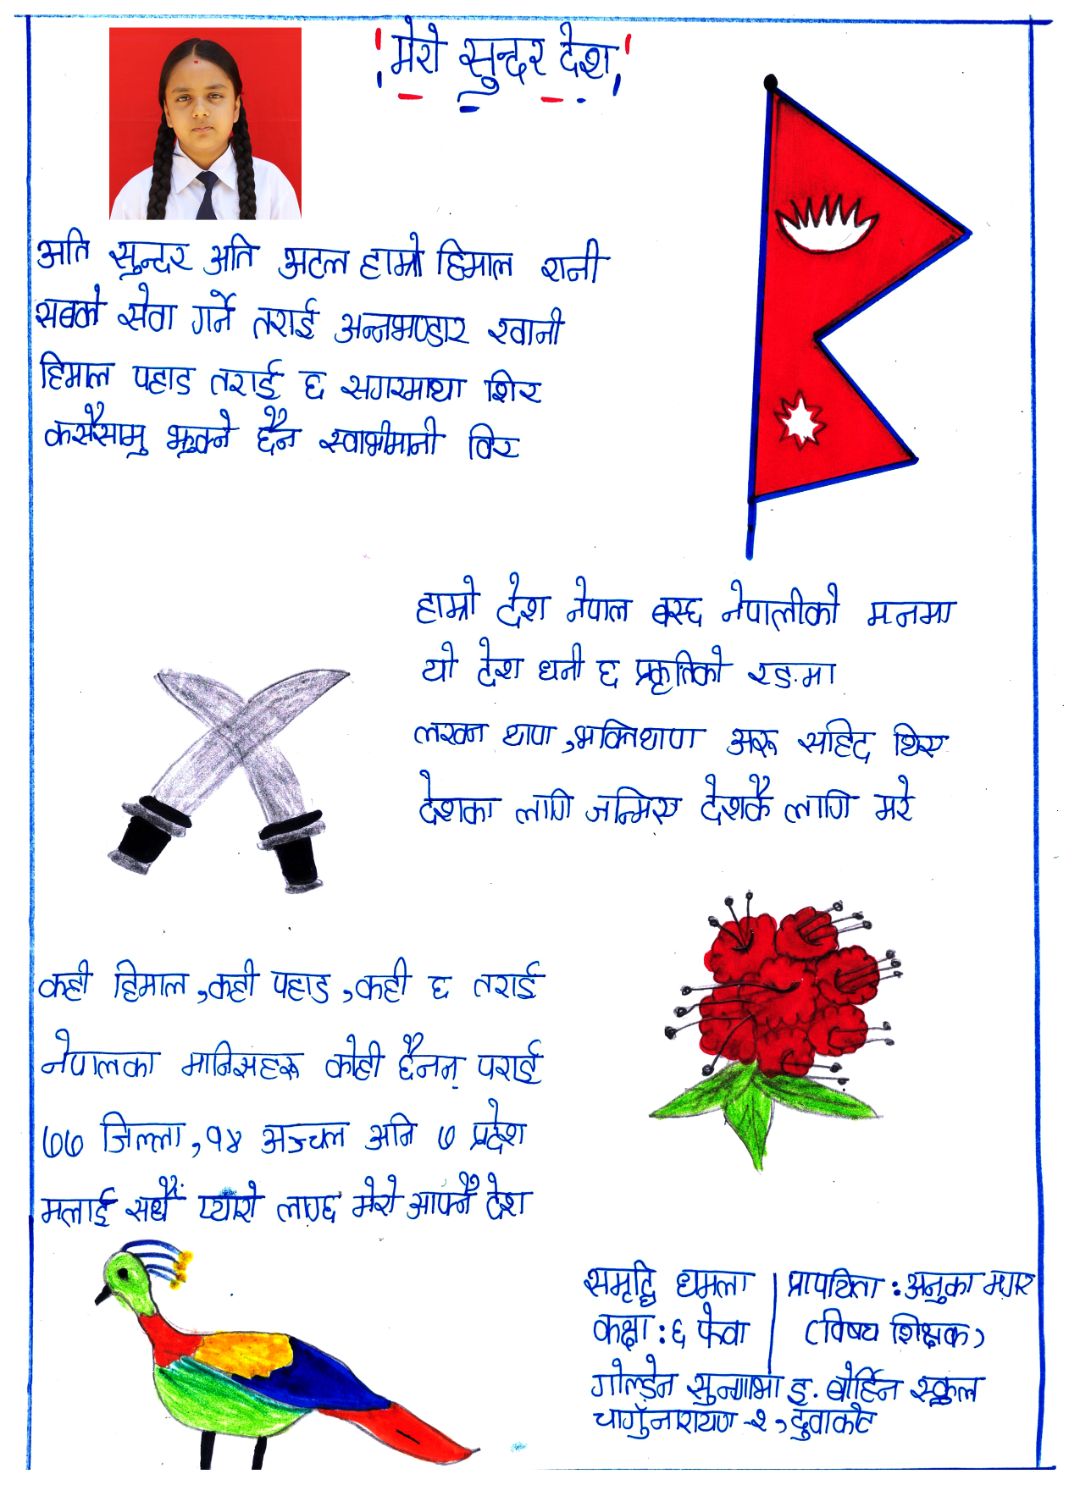 मेरो सुन्दर देश
अति सुन्दर अति अटल हाम्रो हिमाल रानी
सबको सेवा गर्ने तराई अन्नभण्डार खानी
हिमाल पहाड तराई छ सगरमाथा शिर
कसैसामु झुक्ने छैन स्वाभीमानी विर
हाम्रो देश नेपाल बस्छ नेपालीको मनमा
यो देश धनी छ प्रकृतिको रङमा
लखन थापा, भक्तिथापा अरू सहिद थिए
देशका लागि जन्मिए देशकै लागि मरे
कही हिमाल, कही पहाड, कही छ तराई
नेपालका मानिसहरू कोही छैनन् पराई
७७ जिल्ला, १४ अञ्चल अनि ७ प्रदेश
मलाई सधैं प्यारो लाग्छ मेरो आफ्नै देश
समृद्धि धमला
कक्षा : ६ फेवा
अनुका मगर
(विषय शिक्षक)
गोल्डेन सुनगाभा इ. बोर्डिन स्कूल
चाँगुनारायण -२, दुवाकोट